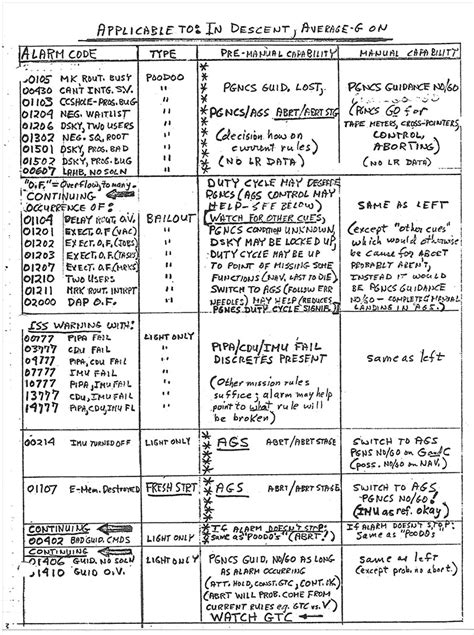 APPLICABLE TO: IN DESCENT, AVERAGE-G ON
ALARM CODE TYPE PRE-MANUAL CAPABILITY MANUAL CAPABILITY
00105 MK ROUT. BUSY POODOO
00430 CANT INTG. S.V. "
01103 CCSHOLE-PROG. BUG "
01204 NEG. WAITLIST "
01206 DSKY, TWO USERS "
01302 NEG. SQ. ROOT "
01501 DSKY, PROG. BAD "
01502 DSKY, PROG. BUG "
00607 LAMB. NO SOLN "
PGNCS GUID. LOST,
PGNCS/AGS ABRT/ABRT STG
(decision how on
current rules)
(NO LR DATA)
PGNCS GUIDANCE NO/GO
(PGNCS GO for
TAPE METERS, CROSS-POINTERS,
CONTROL,
ABORTING)
(NO LR DATA)
"O.F." = Overflow, too many.
CONTINUING
OCCURRENCE OF:
01104 DELAY ROUT. O.V. BAILOUT
01201 EXECT. O.F (VAC) "
01202 EXECT. O.F (JOBS) "
01203 EXECT. O.F (TASKS) "
01207 EXECT. O.F "
01210 TWO USERS "
01211 MRK ROUT. INTRPT "
02000 DAP O.F. "
DUTY CYCLE MAY
PGNCS (AGS CONTROL MAY
HELP - SEE BELOW)
WATCH FOR OTHER CUES,
PGNCS CONDITION UNKNOWN,
DSKY MAY BE LOCKED UP,
DUTY CYCLE MAY BE UP
TO POINT OF MISSING SOME
FUNCTIONS (NAV. LAST TO DIE)
SWITCH TO AGS (FOLLOW ERR
NEEDLES) MAY HELP (REDUCES
PGNCS DUTY CYCLE
SAME AS LEFT
(except "other cues"
which would otherwise
be cause for ABORT
PROBABLY AREN'T,
INSTEAD IT WOULD
BE PGNCS GUIDANCE
NO/GO - COMPLETE MANUAL
LANDING IN AGS.)
ISS WARNING WITH:
00777 PIPA FAIL LIGHT ONLY
03777 CDU FAIL "
04777 PIPA, CDU FAIL "
07777 IMU FAIL "
10777 PIPA, IMU FAIL "
13777 CDU, IMU FAIL "
14777 PIPA, CDU, IMU FL "
PIPA/CDU/IMU FAIL
DISCRETES PRESENT
(Other mission rules
suffice; alarm may help
point to what rule will
be broken)
same as left
00214 IMU TURNED OFF LIGHT ONLY AGS ABRT/ABRT STAGE
SWITCH TO AGS
PGNS NO/GO ON G and C
(POSS. NO/GO ON NAV.)
01107 E-Mem. Destroyed FRESH STRT AGS ABRT/ABRT STAGE
SWITCH TO AGS
PGNCS NO/GO!
(IMU as ref. okay)
CONTINUING
00402 BAD GUID. CMDS LIGHT ONLY
IF ALARM DOESN'T STOP:
Same as "POODOO's" (ABRT!)
IF ALARM DOESN'T STOP:
Same as "POODOO'S"
CONTINUING
01406 GUID. NO SOLN LIGHT ONLY
01410 GUID O.V. "
PGNCS GUID. NO/GO AS LONG
AS ALARM OCCURRING
(ATT. HOLD, CONST. GTC, CONT. )
(ABRT WILL PROB. COME FROM
CURRENT RULES e.g. GTC vs. V)
WATCH GTC
same as left
(except prob. no abort.)